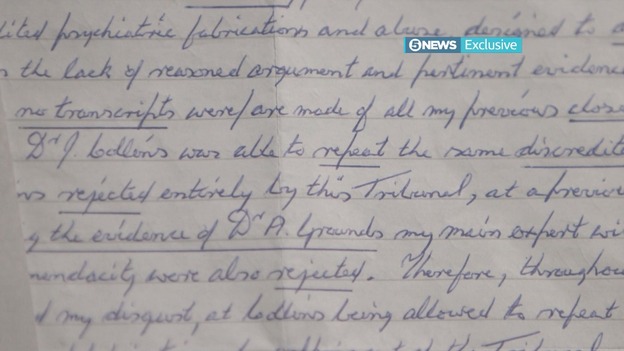 5NEWS Exclusive
dited psychiatric fabrications and abuse designed to a
s the lack of reasoned argument and pertinent evidence
no transcripts were/are made of all my previous close
Dr J. Collins was able to repeat the same discredite
ins rejected entirely by this Tribunal, at a previo
y the evidence of Dr A. Grounds my main expert wi
mendacity were also rejected. Therefore, througho
d my disgust, at Collins being allowed to repeat
at the Tribunal